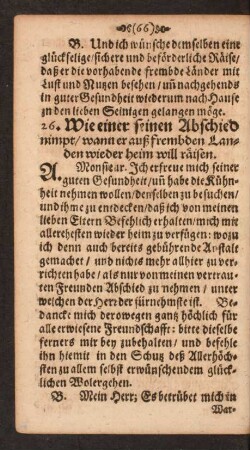 (66)
B. Und ich wünsche demselben eine
glückselige/sichere und beförderliche Räise/
daß er die vorhabende frembde Länder mit
Lust und Nutzen besehen / uñ nachgehends
in guter Gesundheit wiederum nach Hause
zu den lieben Seinigen gelangen möge.
26. Wie einer seinen Abschied
nimpt / wann er auß frembden Lan-
den wieder heim will räisen.
A. Monsieur. Ich erfreue mich seiner
guten Gesundheit / uñ habe die Kühn-
heit nehmen wollen / denselben zu besuchen/
und ihme zu entdecken / daß ich von meinen
lieben Eltern Befehlich erhalten / mich mit
allerehesten wieder heim zu verfügen: wozu
ich denn auch bereits gebührende Anstalt
gemachet / und nichts mehr allhier zu ver-
richten habe / als nur von meinen vertrau-
ten Freunden Abschied zu nehmen / unter
welchen der Herr der fürnemste ist. Be-
dancke mich derowegen gantz höchlich für
alle erwiesene Freundschafft: bitte dieselbe
ferners mir bey zubehalten / und befehle
ihn hiemit in den Schutz deß Allerhöch-
sten zu allem selbst erwünschendem glück-
lichen Wolergehen.
B. Mein Herr; Es betrübet mich in
War-